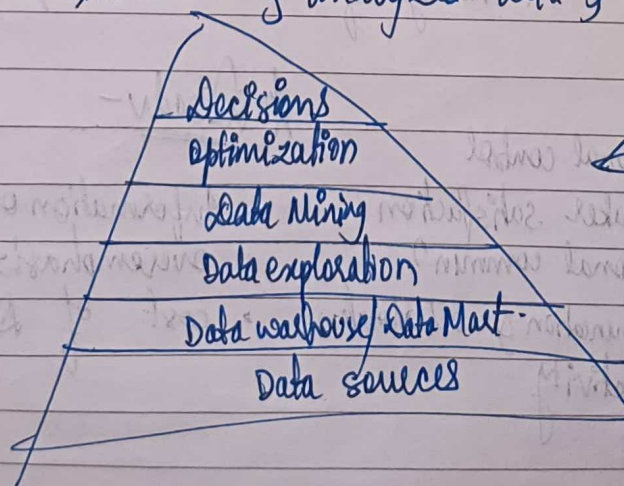 Decisions
Optimization
Data Mining
Data exploration
Data warhouse/Data Mart.
Data sources